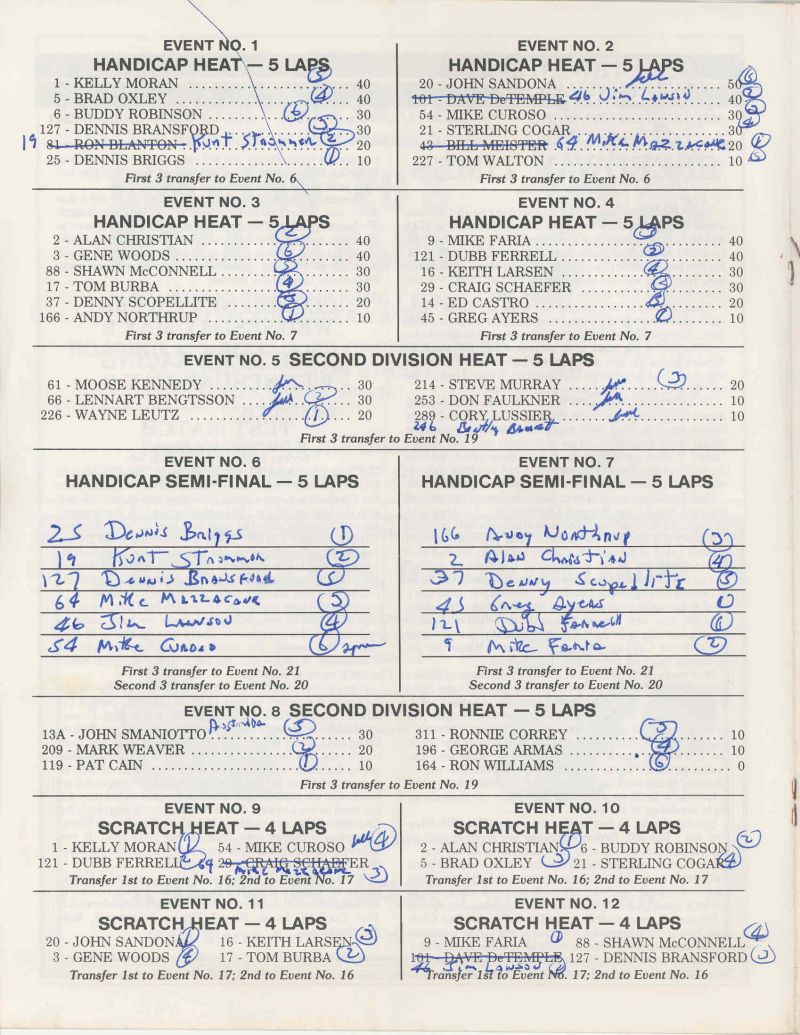 EVENT NO. 1
HANDICAP HEAT — 5 LAPS
1 - KELLY MORAN 40
5 - BRAD OXLEY ④ 40
6 - BUDDY ROBINSON ⑥ 30
127 - DENNIS BRANSFORD ③ 30
19 81 - RON BLANTON - Kurt Strommen ② 20
25 - DENNIS BRIGGS ① 10
First 3 transfer to Event No. 6
EVENT NO. 2
HANDICAP HEAT — 5 LAPS
20 - JOHN SANDONA fell 50 ⑥
101 - DAVE DeTEMPLE 46 Jim Lawson 40 ②
54 - MIKE CUROSO 30 ③
21 - STERLING COGAR 30 ④
43 - BILL MEISTER 64 Mike Mazzacane 20 ①
227 - TOM WALTON 10 ⑤
First 3 transfer to Event No. 6
EVENT NO. 3
HANDICAP HEAT — 5 LAPS
2 - ALAN CHRISTIAN ② 40
3 - GENE WOODS ⑥ 40
88 - SHAWN McCONNELL ⑤ 30
17 - TOM BURBA ④ 30
37 - DENNY SCOPELLITE ③ 20
166 - ANDY NORTHRUP ① 10
First 3 transfer to Event No. 7
EVENT NO. 4
HANDICAP HEAT — 5 LAPS
9 - MIKE FARIA 40
121 - DUBB FERRELL 40
16 - KEITH LARSEN ④ 30
29 - CRAIG SCHAEFER 30
14 - ED CASTRO 20
45 - GREG AYERS ① 10
First 3 transfer to Event No. 7
EVENT NO. 5 SECOND DIVISION HEAT — 5 LAPS
61 - MOOSE KENNEDY 30
66 - LENNART BENGTSSON fell ② 30
226 - WAYNE LEUTZ ① 20
214 - STEVE MURRAY ③ 20
253 - DON FAULKNER fell 10
289 - CORY LUSSIER 10
246
First 3 transfer to Event No. 19
EVENT NO. 6
HANDICAP SEMI-FINAL — 5 LAPS
25 Dennis Briggs ①
19 Kurt Strommen ②
127 Dennis Bransford ⑤
64 Mike Mazzacane ③
46 Jim Lawson ④
54 Mike Curoso ⑥
First 3 transfer to Event No. 21
Second 3 transfer to Event No. 20
EVENT NO. 7
HANDICAP SEMI-FINAL — 5 LAPS
166 Andy Northrup ③
2 Alan Christian ④
37 Denny Scopellite ⑤
45 Greg Ayers ①
121 Dubb Farrell ⑥
9 Mike Faria ②
First 3 transfer to Event No. 21
Second 3 transfer to Event No. 20
EVENT NO. 8 SECOND DIVISION HEAT — 5 LAPS
13A - JOHN SMANIOTTO Australia ③ 30
209 - MARK WEAVER ② 20
119 - PAT CAIN ① 10
311 - RONNIE CORREY ⑤ 10
196 - GEORGE ARMAS ④ 10
164 - RON WILLIAMS ⑥ 0
First 3 transfer to Event No. 19
EVENT NO. 9
SCRATCH HEAT — 4 LAPS
1 - KELLY MORAN ① 54 - MIKE CUROSO fell ④
121 - DUBB FERRELL ② 64 29 - CRAIG SCHAEFER
Mike Mazzacane ③
Transfer 1st to Event No. 16; 2nd to Event No. 17
EVENT NO. 10
SCRATCH HEAT — 4 LAPS
2 - ALAN CHRISTIAN ① 6 - BUDDY ROBINSON ②
5 - BRAD OXLEY ③ 21 - STERLING COGAR ④
Transfer 1st to Event No. 16; 2nd to Event No. 17
EVENT NO. 11
SCRATCH HEAT — 4 LAPS
20 - JOHN SANDONA ① 16 - KEITH LARSEN ③
3 - GENE WOODS ④ 17 - TOM BURBA ②
Transfer 1st to Event No. 17; 2nd to Event No. 16
EVENT NO. 12
SCRATCH HEAT — 4 LAPS
9 - MIKE FARIA ① 88 - SHAWN McCONNELL ④
101 - DAVE DeTEMPLE 127 - DENNIS BRANSFORD ③
46 Jim Lawson ②
Transfer 1st to Event No. 17; 2nd to Event No. 16